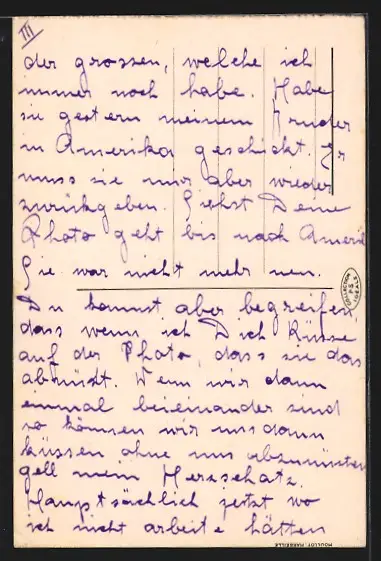 III
der grossen, welche ich
immer noch habe. Habe
sie gestern meinem Bruder
in Amerika geschickt. Er
muss sie mir aber wieder
zurückgeben. Siehst Deine
Photo geht bis nach Ameri
Sie war nicht mehr neu.
Du kannst aber begreifen
dass wenn ich Dich küsse
auf der Photo, dass sie das
abnützt. Wenn wir dann
einmal beieinander sind
so können wir uns dann
küssen ohne uns abzunützen
gell mein Herzschatz.
Hauptsächlich jetzt wo
ich nicht arbeite hätten
COLLECTION
P.S.
IDEALE
MOULLOT MARSEILLE